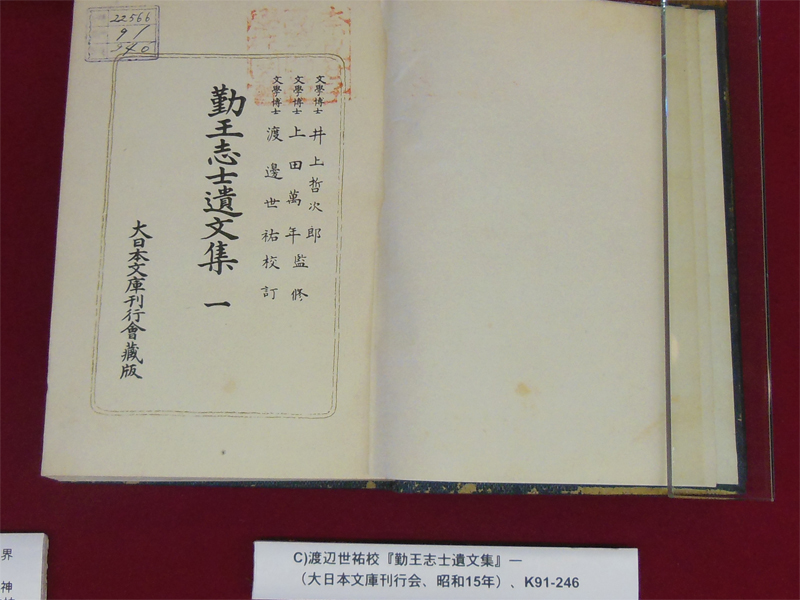 22566
91
240
文學博士 井上哲次郎
文學博士 上田萬年監修
文學博士 渡邊世祐校訂
勤王志士遺文集 一
大日本文庫刊行會藏版
界
神
C)渡辺世祐校『勤王志士遺文集』一
（大日本文庫刊行会、昭和15年）、K91-246